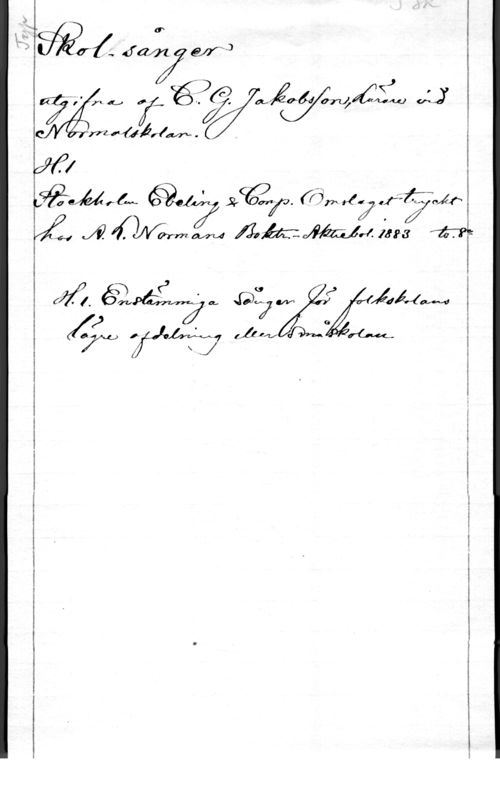 Skol-sånger
utgifna af C. G. Jakobsson, Lärare vid
Normalskolan.
H. 1
Stockholm Ebeling & Comp. (Omslaget tryckt
hos A. L. Normans Boktr.-Aktiebol. 1883 8º
H. 1. Enstämmiga sånger för folkskolans
lägre afdelning eller småskolan.